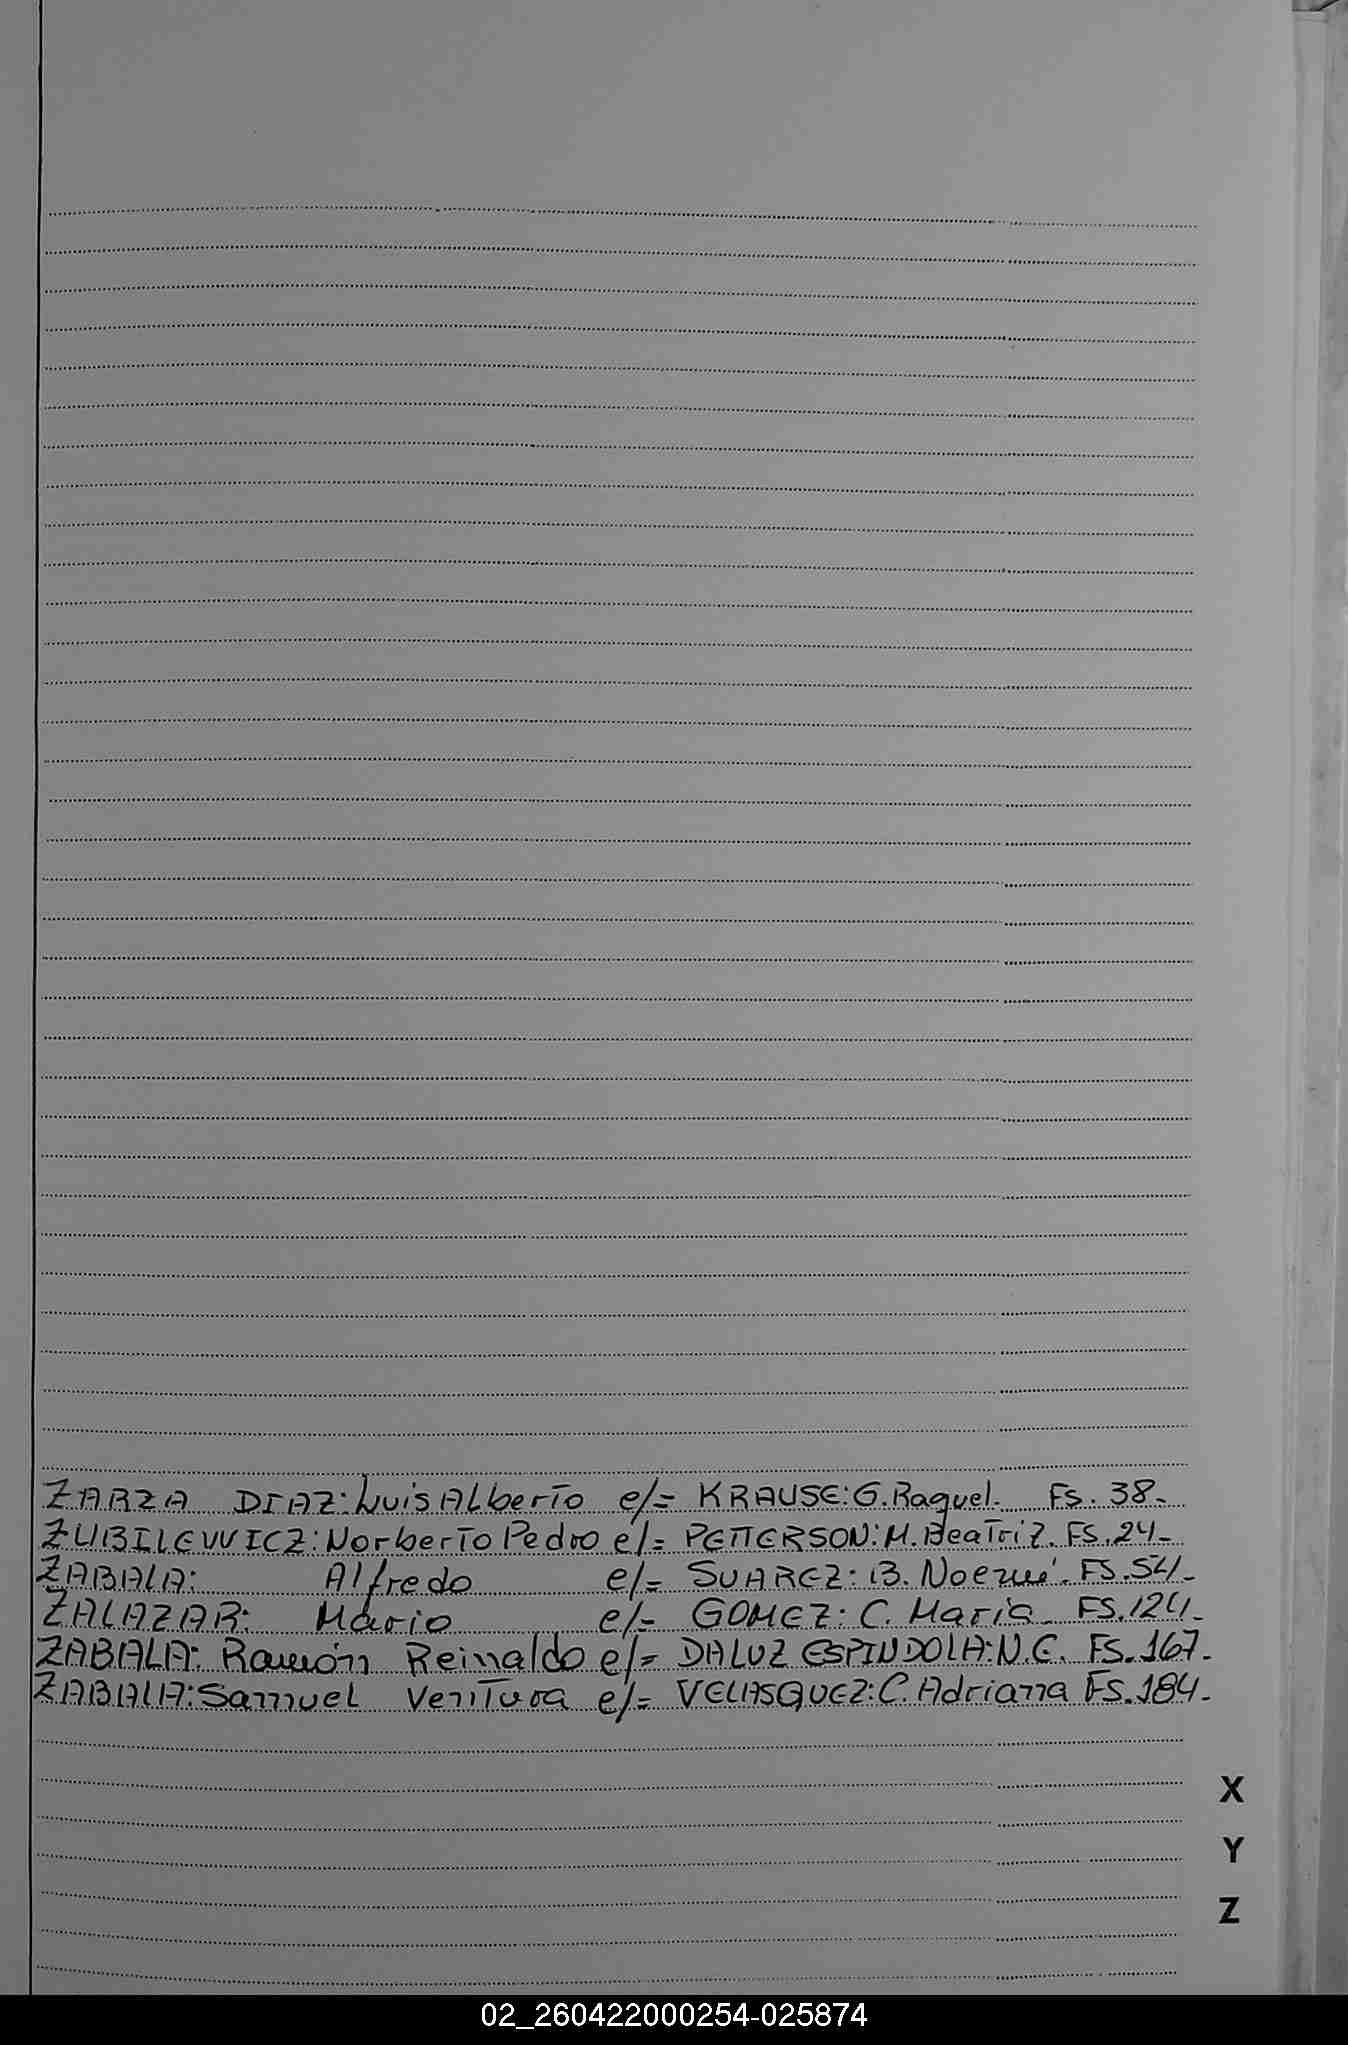 ZARZA DIAZ: Luis Alberto e/= KRAUSE: G. Raquel. Fs. 38-
ZUBILEWICZ: Norberto Pedro e/= PETTERSON: M. Beatriz. FS. 24-
ZABALA: Alfredo e/= SUAREZ: B. Noemí. FS. 54-
ZALAZAR: Mario e/= GOMEZ: C. Maria. FS. 124-
ZABALA: Ramón Reinaldo e/= DALUZ ESPINDOLA: N.E. FS. 167-
ZABALA: Samuel Ventura e/= VELASQUEZ: C. Adriana Fs. 184-
X
Y
Z
02_260422000254-025874